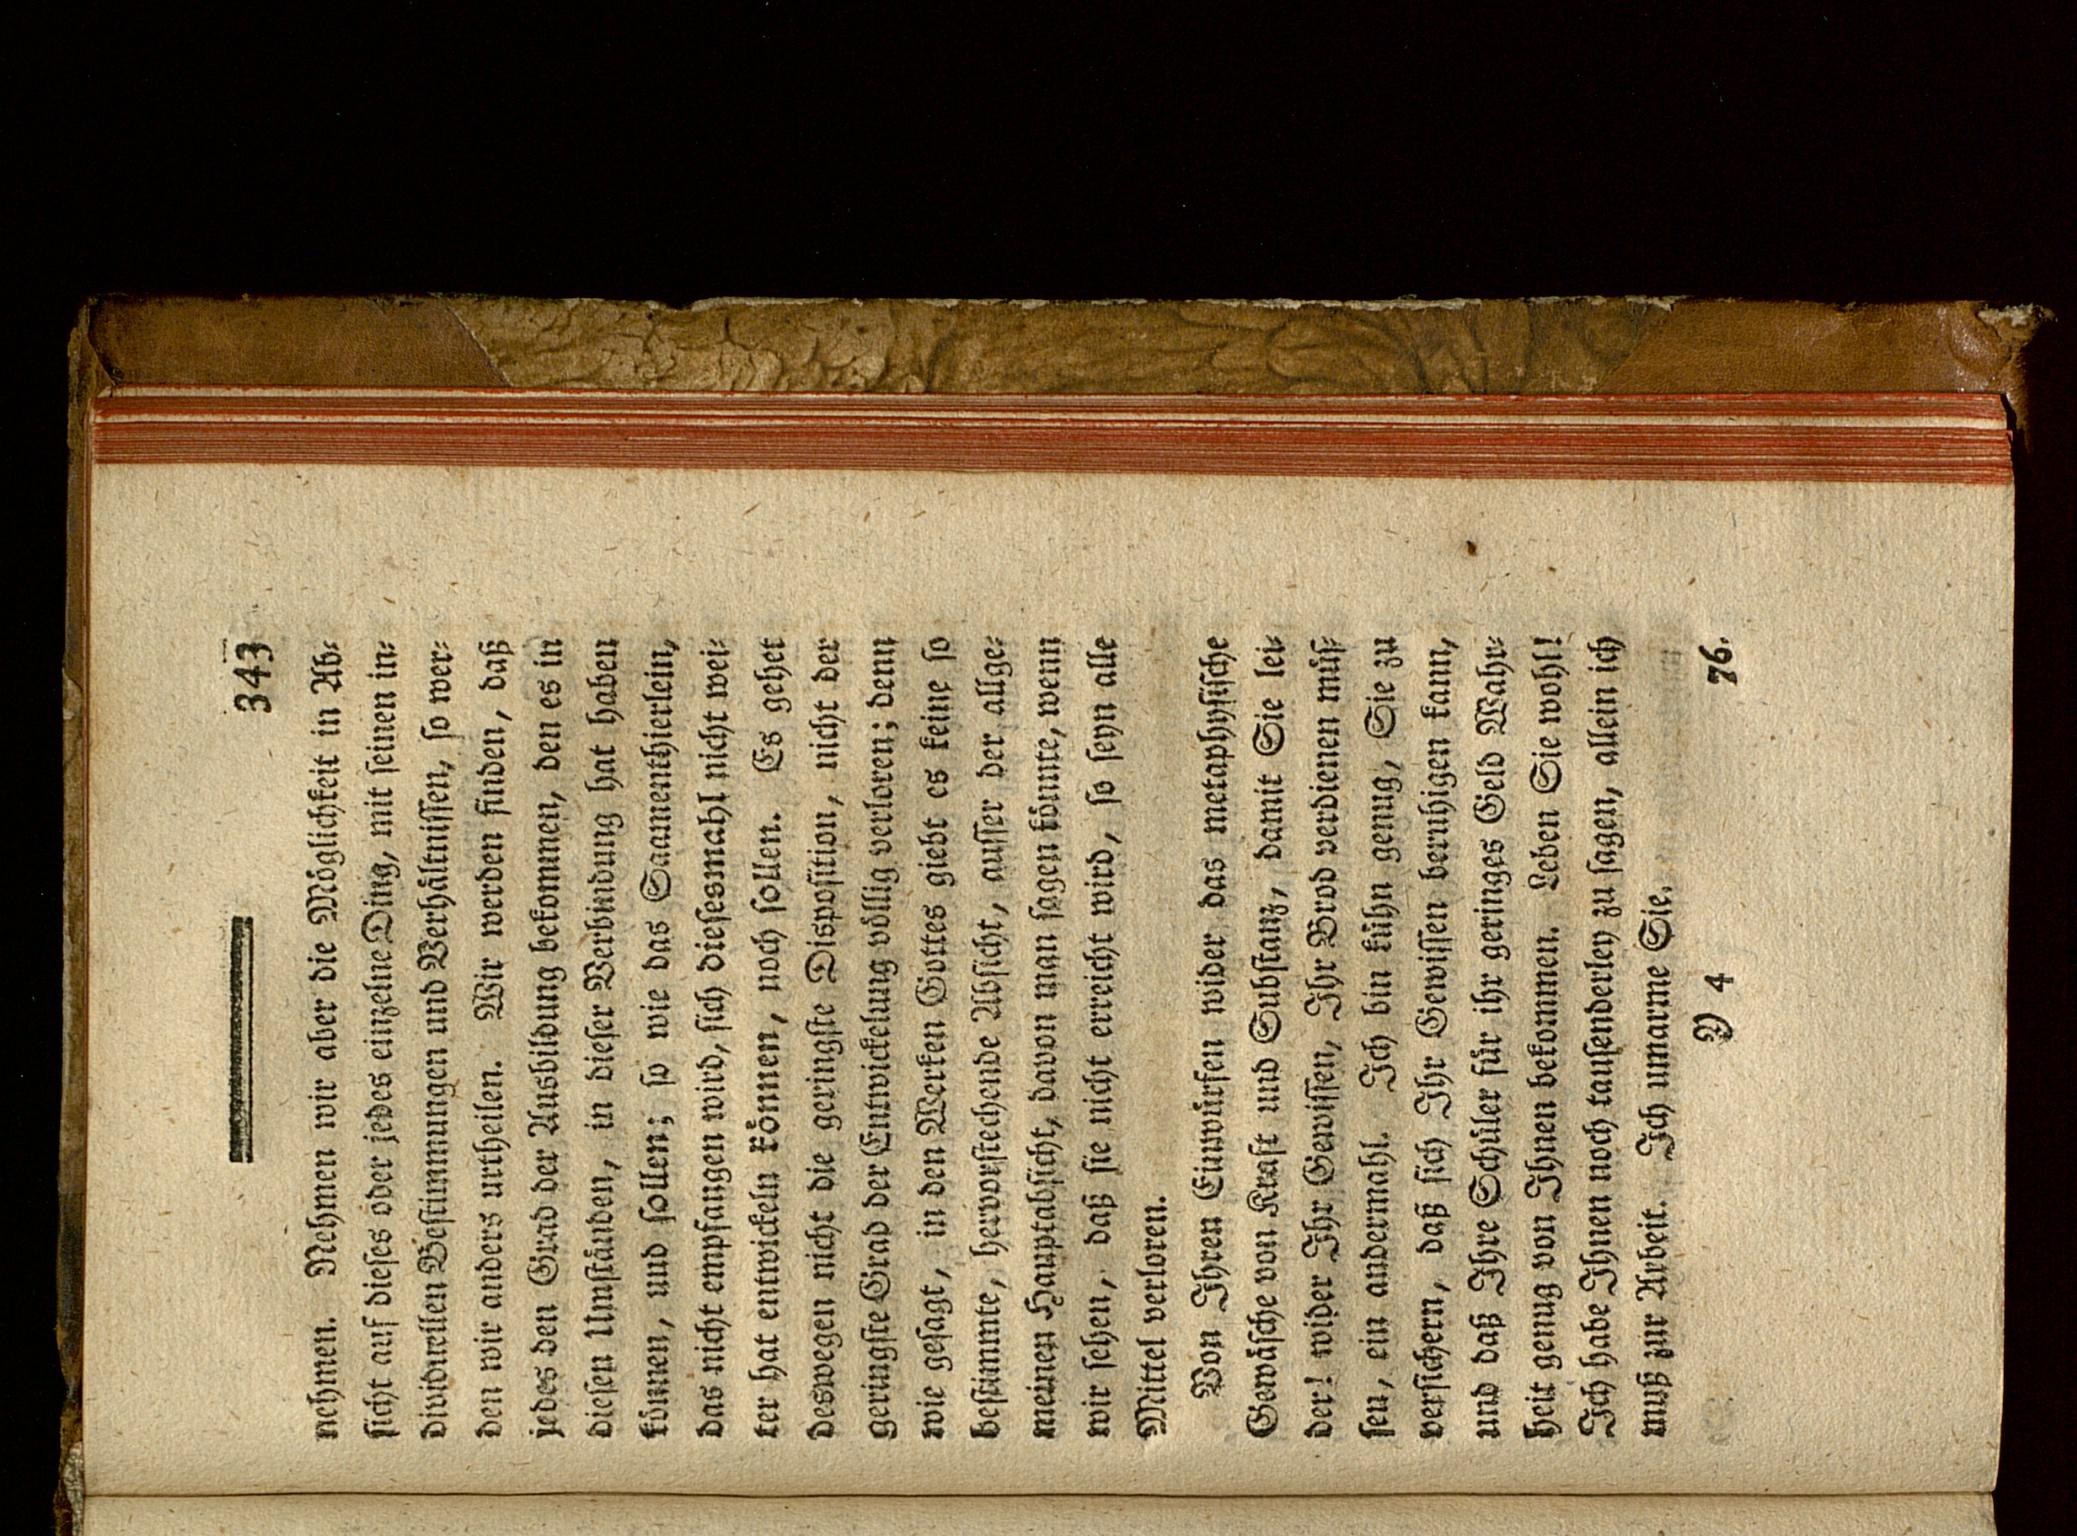 343
nehmen. Nehmen wir aber die Möglichkeit in Ab-
ſicht auf dieſes oder jedes einzelne Ding, mit ſeinen in-
dividuellen Beſtimmungen und Verhältniſſen, ſo wer-
den wir anders urtheilen. Wir werden finden, daß
jedes den Grad der Ausbildung bekommen, den es in
dieſen Umſtänden, in dieſer Verbindung hat haben
können, und ſollen; ſo wie das Saamenthierlein,
das nicht empfangen wird, ſich dieſesmahl nicht wei-
ter hat entwickeln können, noch ſollen. Es gehet
deswegen nicht die geringſte Dispoſition, nicht der
geringſte Grad der Entwickelung völlig verloren; denn
wie geſagt, in den Werken Gottes giebt es keine ſo
beſtimmte, hervorſtechende Abſicht, auſſer der allge-
meinen Hauptabſicht, davon man ſagen könnte, wenn
wir ſehen, daß ſie nicht erreicht wird, ſo ſeyn alle
Mittel verloren.
Von Ihren Einwürfen wider das metaphyſiſche
Gewäſche von Kraft und Subſtanz, damit Sie lei-
der! wider Ihr Gewiſſen, Ihr Brod verdienen müſ-
ſen, ein andermahl. Ich bin kühn genug, Sie zu
verſichern, daß ſich Ihr Gewiſſen beruhigen kann,
und daß Ihre Schüler für ihr geringes Geld Wahr-
heit genug von Ihnen bekommen. Leben Sie wohl!
Ich habe Ihnen noch tauſenderley zu ſagen, allein ich
muß zur Arbeit. Ich umarme Sie.
Y 4
76.